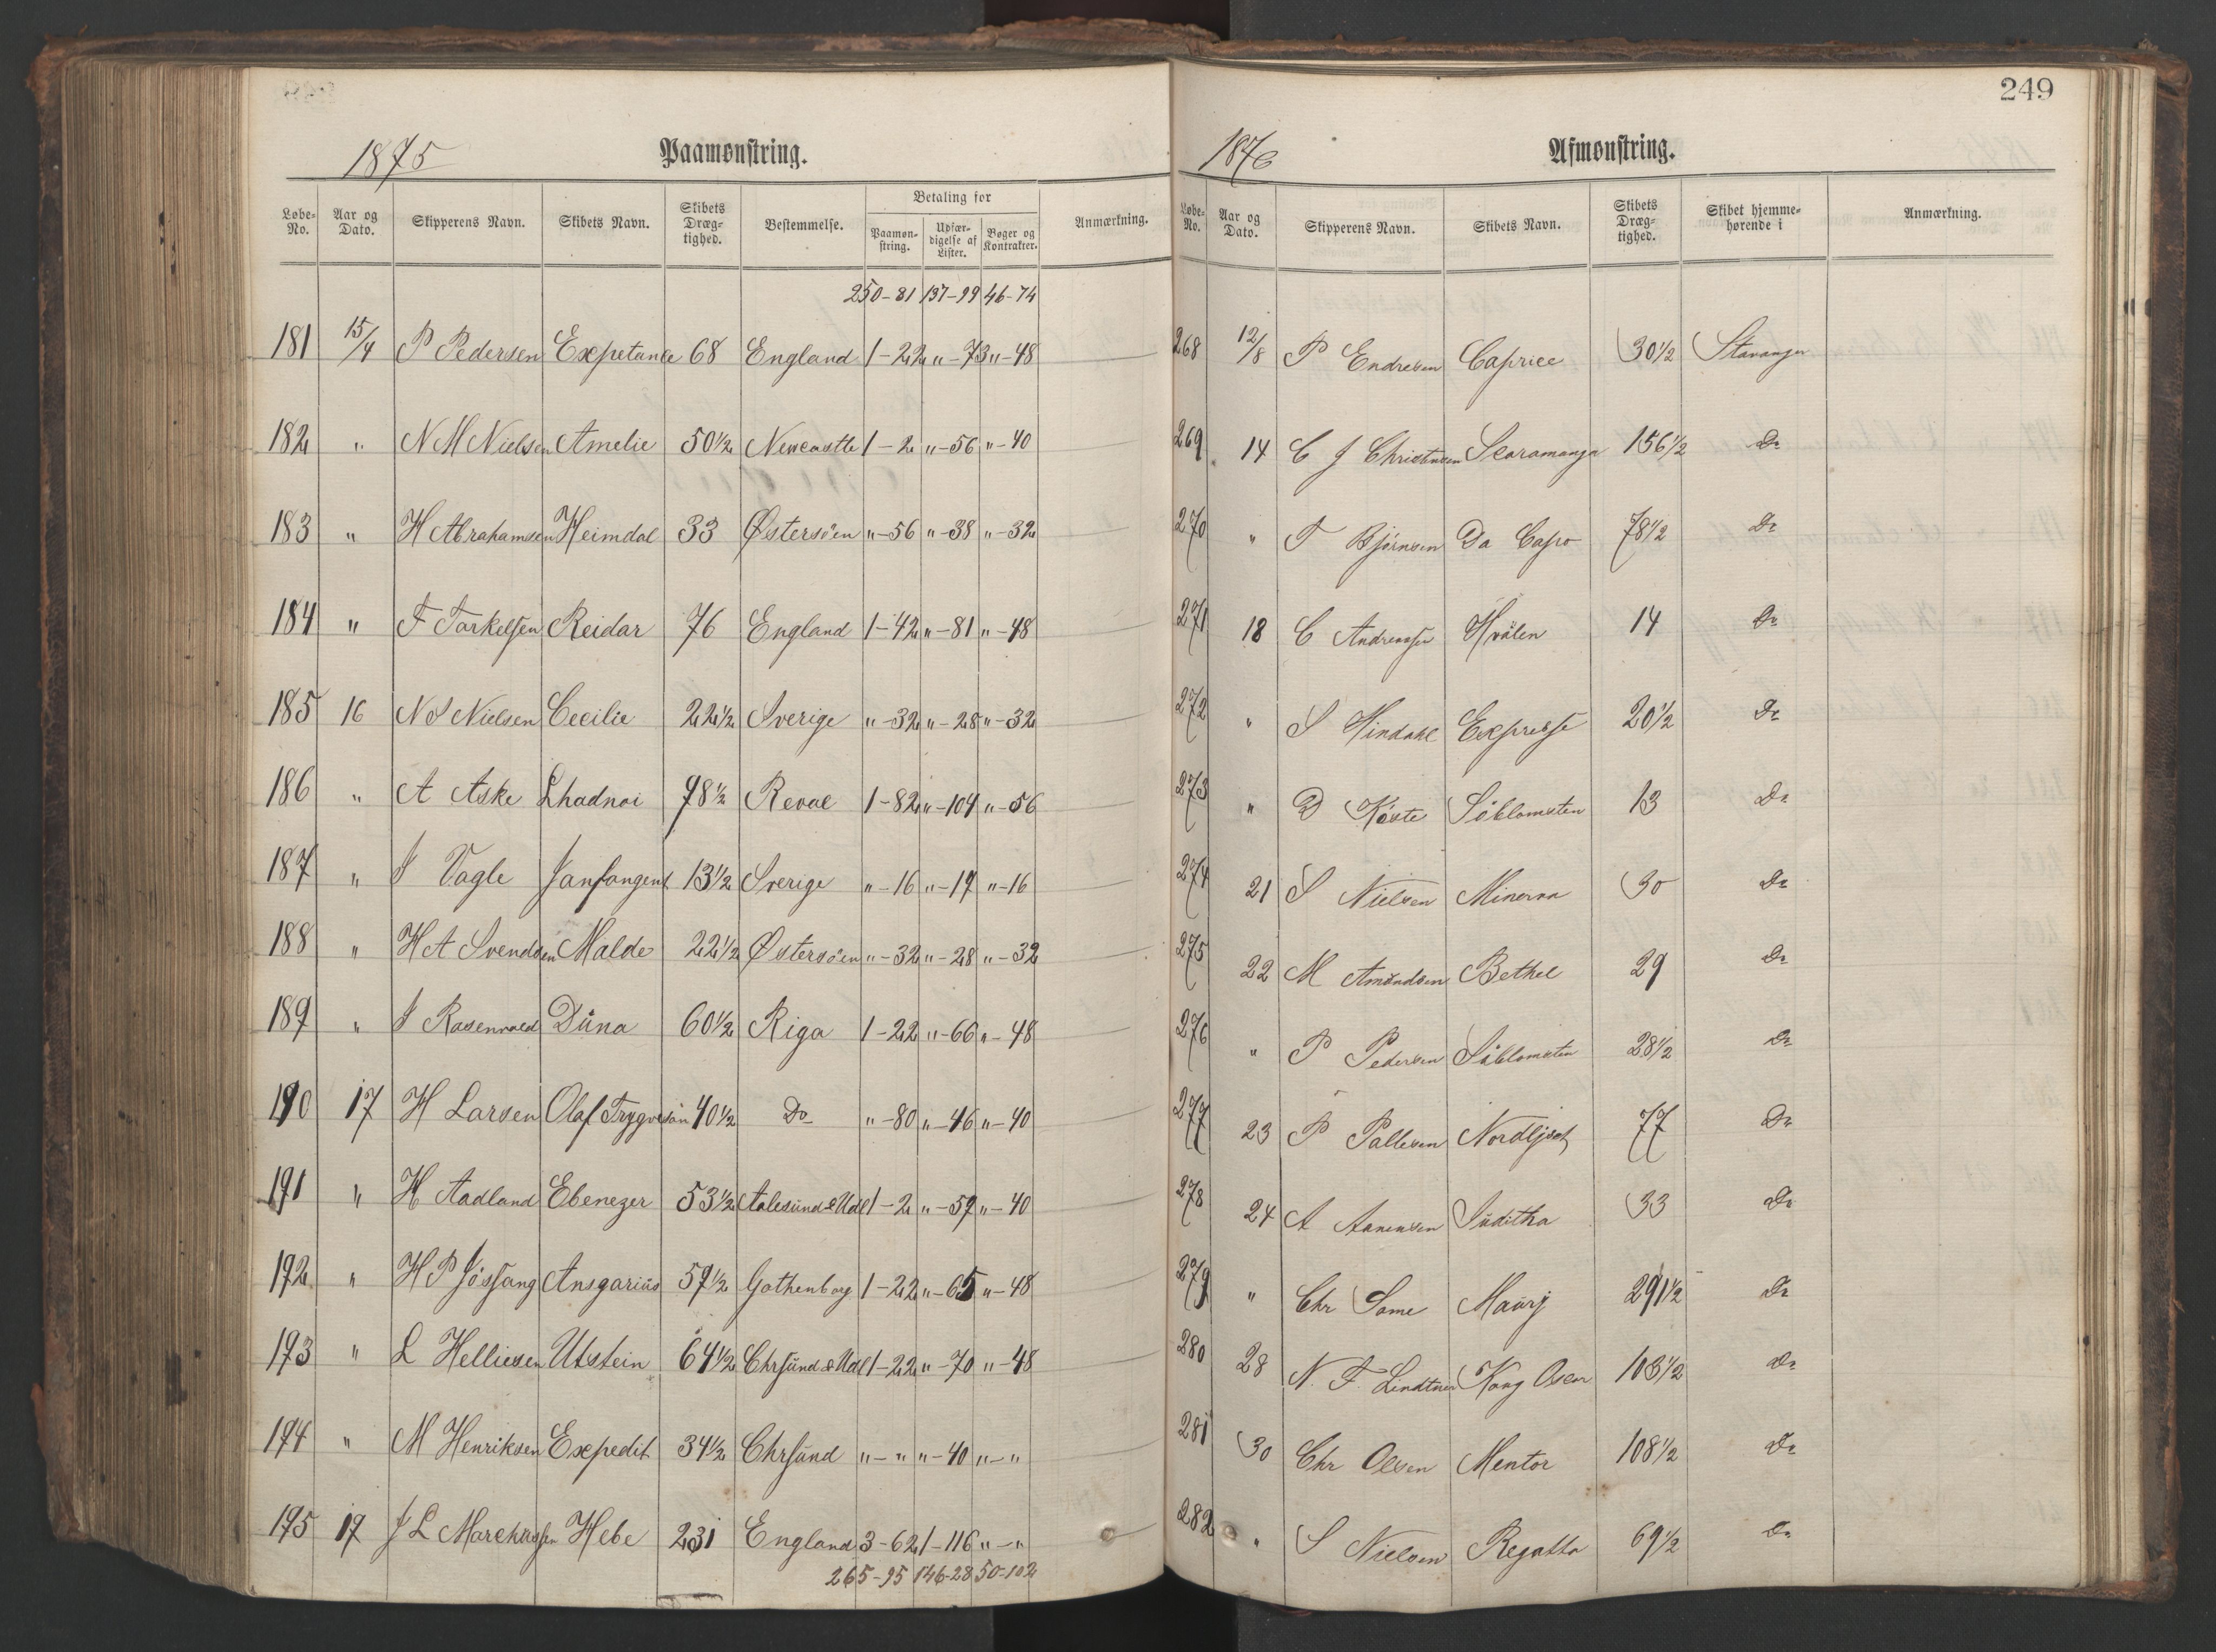 1875 Paamønstring.
Løbe-No. Aar og Dato. Skipperens Navn. Skibets Navn. Skibets Dræg-tighed. Bestemmelse. Betaling for Paamøn-string. Udfær-digelse af Lister. Bøger og Kontrakter. Anmærkning.
250-81 137-99 46-74
181 15/4 P Pedersen Expetance 68 England 1-22 "-73 "-48
182 " N M Nielsen Amelie 50 1/2 Newcastle 1-2 "-56 "-40
183 " H Abrahamsen Heimdal 33 Østersöen "-56 "-38 "-32
184 " F Torkelsen Reidar 76 England 1-42 "-81 "-48
185 16 N S Nielsen Cecilie 22 1/2 Sverige "-32 "-28 "-32
186 " A Aske Lhadnoi 98 1/2 Reval 1-82 "-104 "-56
187 " J Vagle Janfangent 13 1/2 Sverige "-16 "-17 "-16
188 " H A Svendsen Malde 22 1/2 Østersöen "-32 "-28 "-32
189 " J Rosenvald Düna 60 1/2 Riga 1-22 "-66 "-48
190 17 H Larsen Olaf Trygvesön 40 1/2 Do "-80 "-46 "-40
191 " H Aadland Ebenezer 53 1/2 Aalesund & Udl 1-2 "-59 "-40
192 " H P Jössang Ansgarius 59 1/2 Gothenborg 1-22 "-65 "-48
193 " L Helliesen Utstein 64 1/2 Chrsund & Udl 1-22 "-70 "-48
194 " M Henriksen Expedit 34 1/2 Chrsund "-" "-40 "-"
195 19 J L Marchussen Hebe 231 England 3-62 1-116 "-"
265-95 146-28 50-102
249
1876 Afmønstring.
Løbe-No. Aar og Dato. Skipperens Navn. Skibets Navn. Skibets Dræg-tighed. Skibet hjemme-hørende i Anmærkning.
268 12/8 P Endresen Caprice 30 1/2 Stavanger
269 14 C J Christensen Scaramanga 156 1/2 Do
270 " T Bjørnsen Da Capo 78 1/2 Do
271 18 C Andreassen Hvålen 14 Do
272 " S Hindahl Expresse 20 1/2 Do
273 " D Köste Söblomsten 13 Do
274 21 S Nielsen Minerva 30 Do
275 22 M Amundsen Bethel 29 Do
276 " P Pedersen Söblomsten 28 1/2 Do
277 23 P Pallesen Nordlyset 77 Do
278 24 A Aanensen Juditha 33 Do
279 " Chr Some Maurj 291 1/2 Do
280 28 N. F. Lindtner Kong Oscar 103 1/2 Do
281 30 Chr Olsen Mentor 108 1/2 Do
282 " S Nielsen Regatta 69 1/2 Do